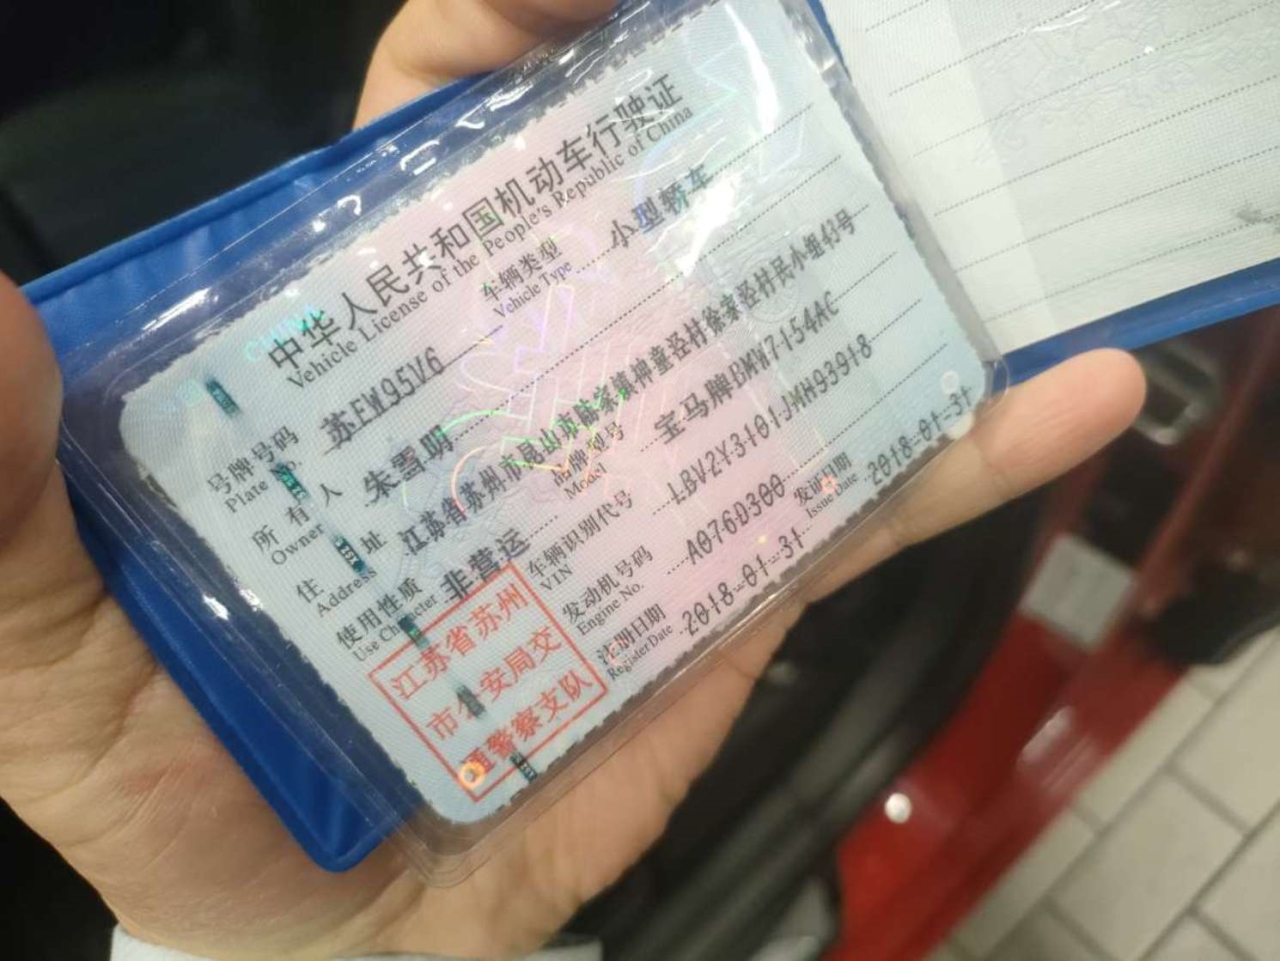 中华人民共和国机动车行驶证
Vehicle License of the People's Republic of China
号牌号码 苏EW95V6 车辆类型 小型轿车
Plate No. Vehicle Type
所有人 朱雪明
Owner
住址 江苏省苏州市昆山市陆家镇神童泾村徐家泾村民小组43号
Address
使用性质 非营运 品牌型号 宝马牌BMW7154AC
Use Character Model
车辆识别代号 LBV2Y3101JMH93918
VIN
发动机号码 A076D300
Engine No.
注册日期 2018-01-31 发证日期 2018-01-31
Register Date Issue Date
江苏省苏州
市公安局交
通警察支队